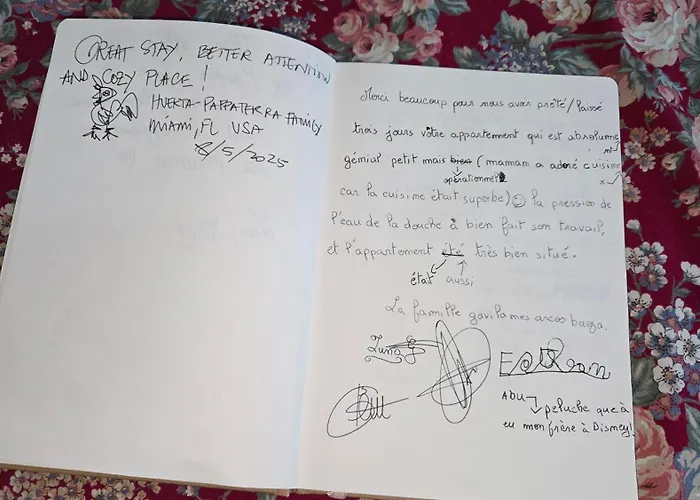 GREAT STAY, BETTER ATTENTION
AND COZY PLACE!
HUERTA-PAPPATERRA FAMILY
MIAMI, FL USA
/5/2025
Merci beaucoup pour nous avoir prété/laissé
trois jours vôtre appartement qui est absolume
nt
génial petit mais bien (mamam a adoré cuisine
opérationnel r
car la cuisine était superbe) ☺ la pression de
l'eau de la douche à bien fait son travail,
et l'appartement été très bien situé.
était aussi
La famille gavilames arcos baeza.
ADU
peluche que à
eu mon frère à Dismey!